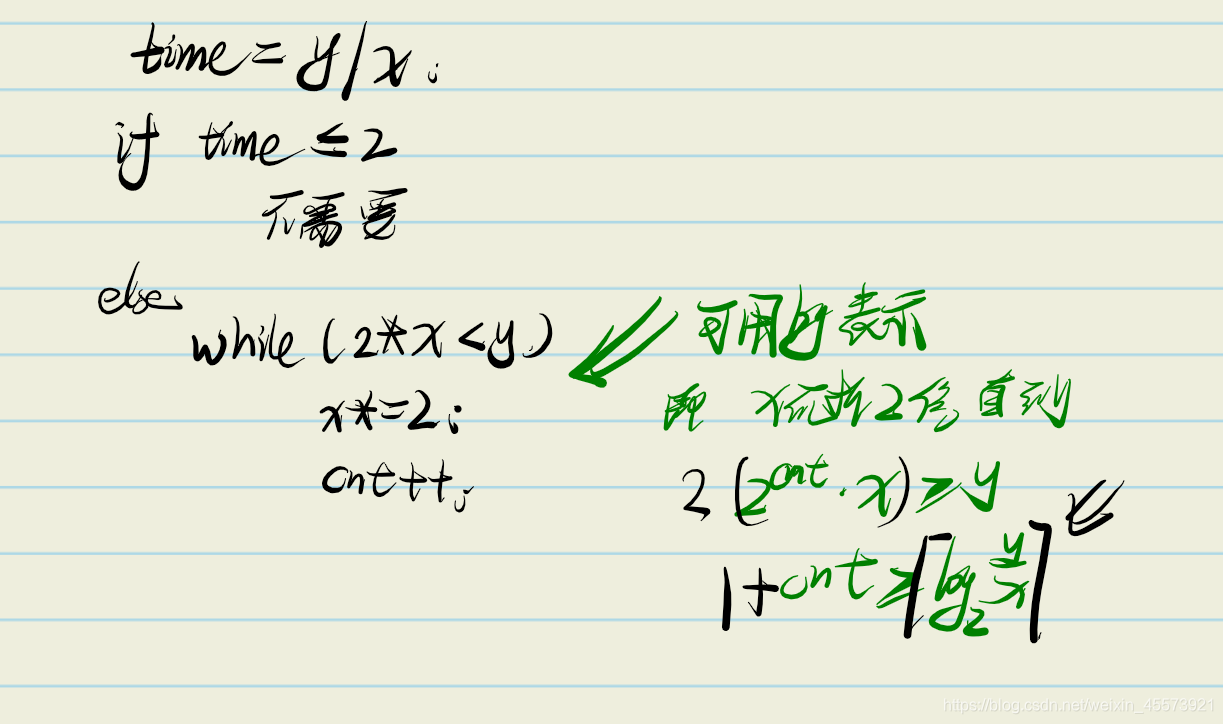 time = y/x;
if time ≤ 2
不需要
else
while (2*x < y)
x*=2;
cnt++;
可用log表示
即 x每次2倍,直到
2(2^cnt · x) ≥ y
1+cnt ≥ ⌈log₂ y/x⌉
https://blog.csdn.net/weixin_45573921